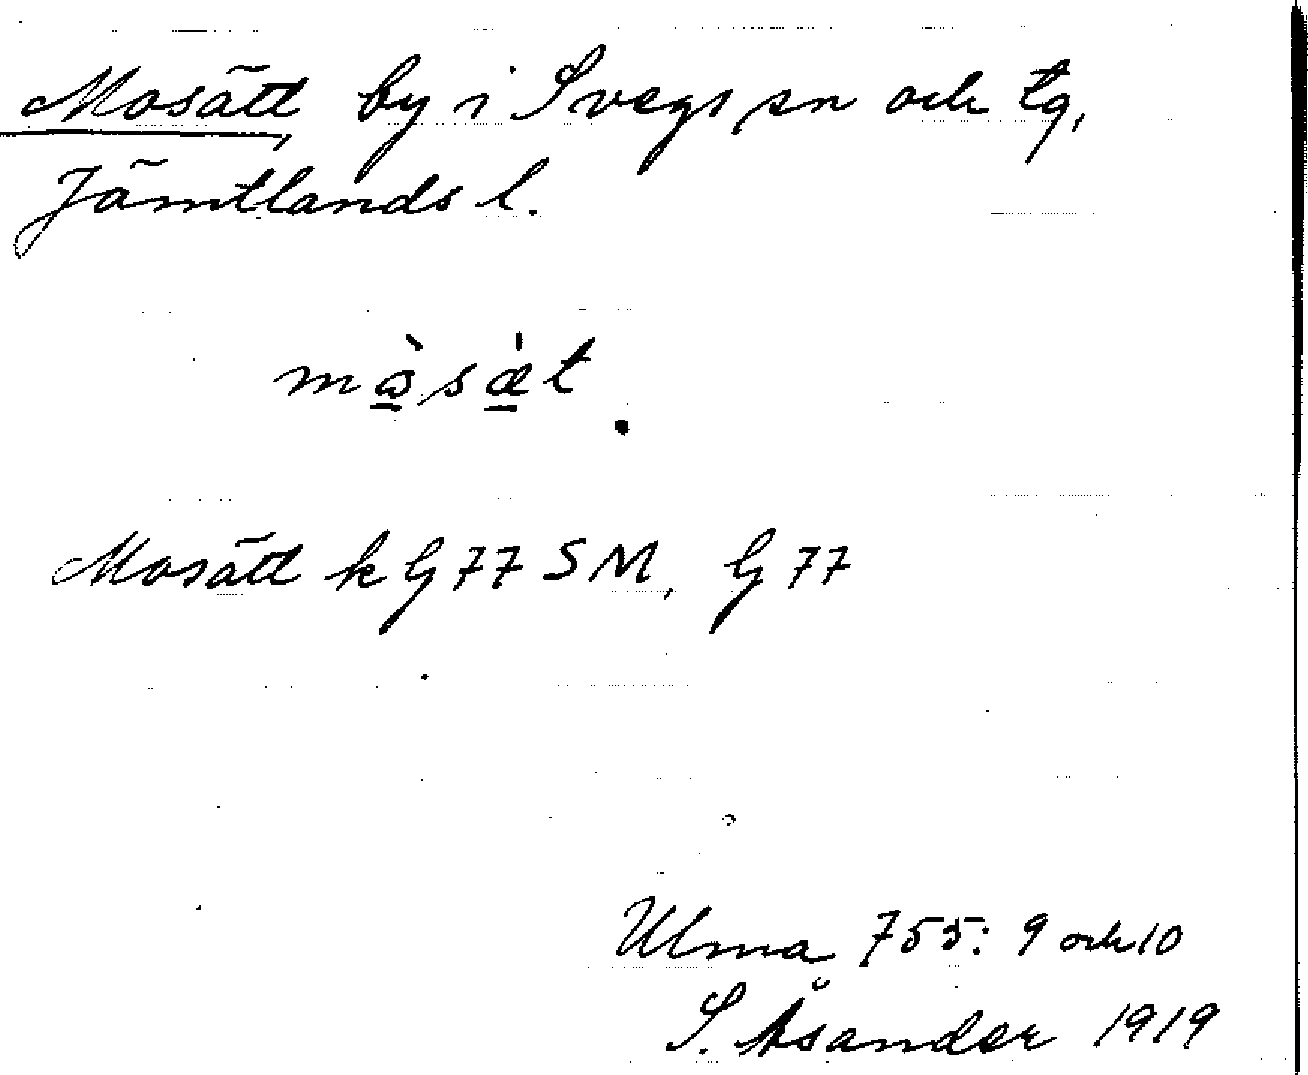 Mosätt, by i Svegs sn och tg,
Jämtlands l.
mɔ̠̀sæ̠̀t
Mosätt k G 77 SM, G 77
Ulma 755: 9 och 10
S. Åsander 1919